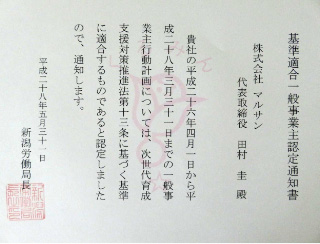 基準適合一般事業主認定通知書
株式会社 マルサン
代表取締役 田村 圭 殿
貴社の平成二十六年四月一日から平
成二十八年三月三十一日までの一般事
業主行動計画については、次世代育成
支援対策推進法第十三条に基づく基準
に適合するものであると認定しました
ので、通知します。
平成二十八年五月三十一日
新潟労働局長